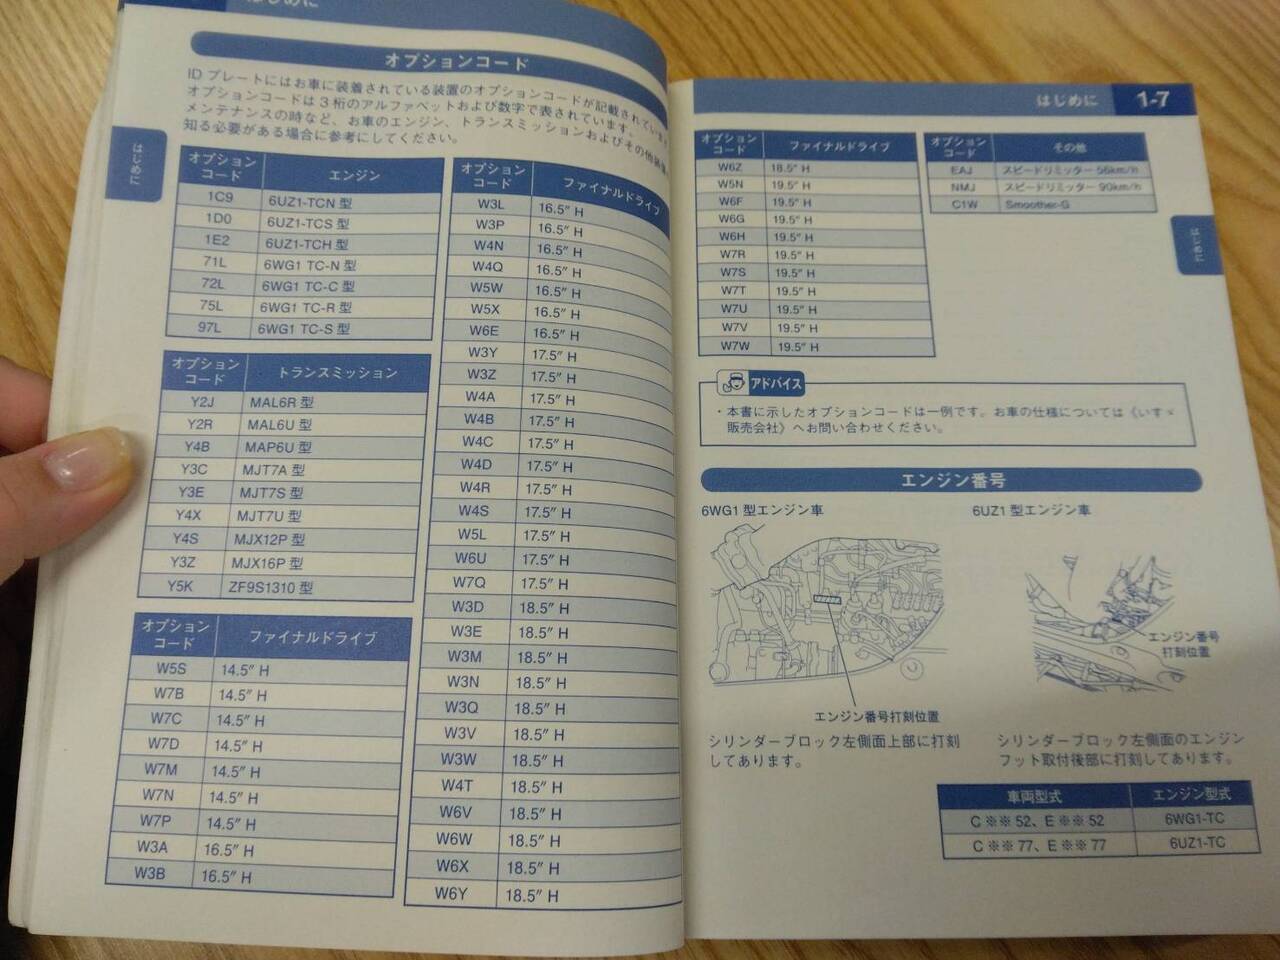 はじめに
オプションコード
IDプレートにはお車に装着されている装置のオプションコードが記載されています
オプションコードは3桁のアルファベットおよび数字で表されています。
メンテナンスの時など、お車のエンジン、トランスミッションおよびその他
知る必要がある場合に参考にしてください。
はじめに
オプションコード エンジン
1C9 6UZ1-TCN 型
1D0 6UZ1-TCS 型
1E2 6UZ1-TCH 型
71L 6WG1 TC-N 型
72L 6WG1 TC-C 型
75L 6WG1 TC-R 型
97L 6WG1 TC-S 型
オプションコード トランスミッション
Y2J MAL6R 型
Y2R MAL6U 型
Y4B MAP6U 型
Y3C MJT7A 型
Y3E MJT7S 型
Y4X MJT7U 型
Y4S MJX12P 型
Y3Z MJX16P 型
Y5K ZF9S1310 型
オプションコード ファイナルドライブ
W5S 14.5″ H
W7B 14.5″ H
W7C 14.5″ H
W7D 14.5″ H
W7M 14.5″ H
W7N 14.5″ H
W7P 14.5″ H
W3A 16.5″ H
W3B 16.5″ H
オプションコード ファイナルドライブ
W3L 16.5″ H
W3P 16.5″ H
W4N 16.5″ H
W4Q 16.5″ H
W5W 16.5″ H
W5X 16.5″ H
W6E 16.5″ H
W3Y 17.5″ H
W3Z 17.5″ H
W4A 17.5″ H
W4B 17.5″ H
W4C 17.5″ H
W4D 17.5″ H
W4R 17.5″ H
W4S 17.5″ H
W5L 17.5″ H
W6U 17.5″ H
W7Q 17.5″ H
W3D 18.5″ H
W3E 18.5″ H
W3M 18.5″ H
W3N 18.5″ H
W3Q 18.5″ H
W3V 18.5″ H
W3W 18.5″ H
W4T 18.5″ H
W6V 18.5″ H
W6W 18.5″ H
W6X 18.5″ H
W6Y 18.5″ H
はじめに 1-7
オプションコード ファイナルドライブ
W6Z 18.5″ H
W5N 19.5″ H
W6F 19.5″ H
W6G 19.5″ H
W6H 19.5″ H
W7R 19.5″ H
W7S 19.5″ H
W7T 19.5″ H
W7U 19.5″ H
W7V 19.5″ H
W7W 19.5″ H
オプションコード その他
EAJ スピードリミッター 56km/h
NMJ スピードリミッター 90km/h
C1W Smoother-G
はじめに
アドバイス
・本書に示したオプションコードは一例です。お車の仕様については《いすゞ
販売会社》へお問い合わせください。
エンジン番号
6WG1 型エンジン車
エンジン番号打刻位置
シリンダーブロック左側面上部に打刻
してあります。
6UZ1 型エンジン車
エンジン番号
打刻位置
シリンダーブロック左側面のエンジン
フット取付後部に打刻してあります。
車両型式 エンジン型式
C ※※ 52、E ※※ 52 6WG1-TC
C ※※ 77、E ※※ 77 6UZ1-TC